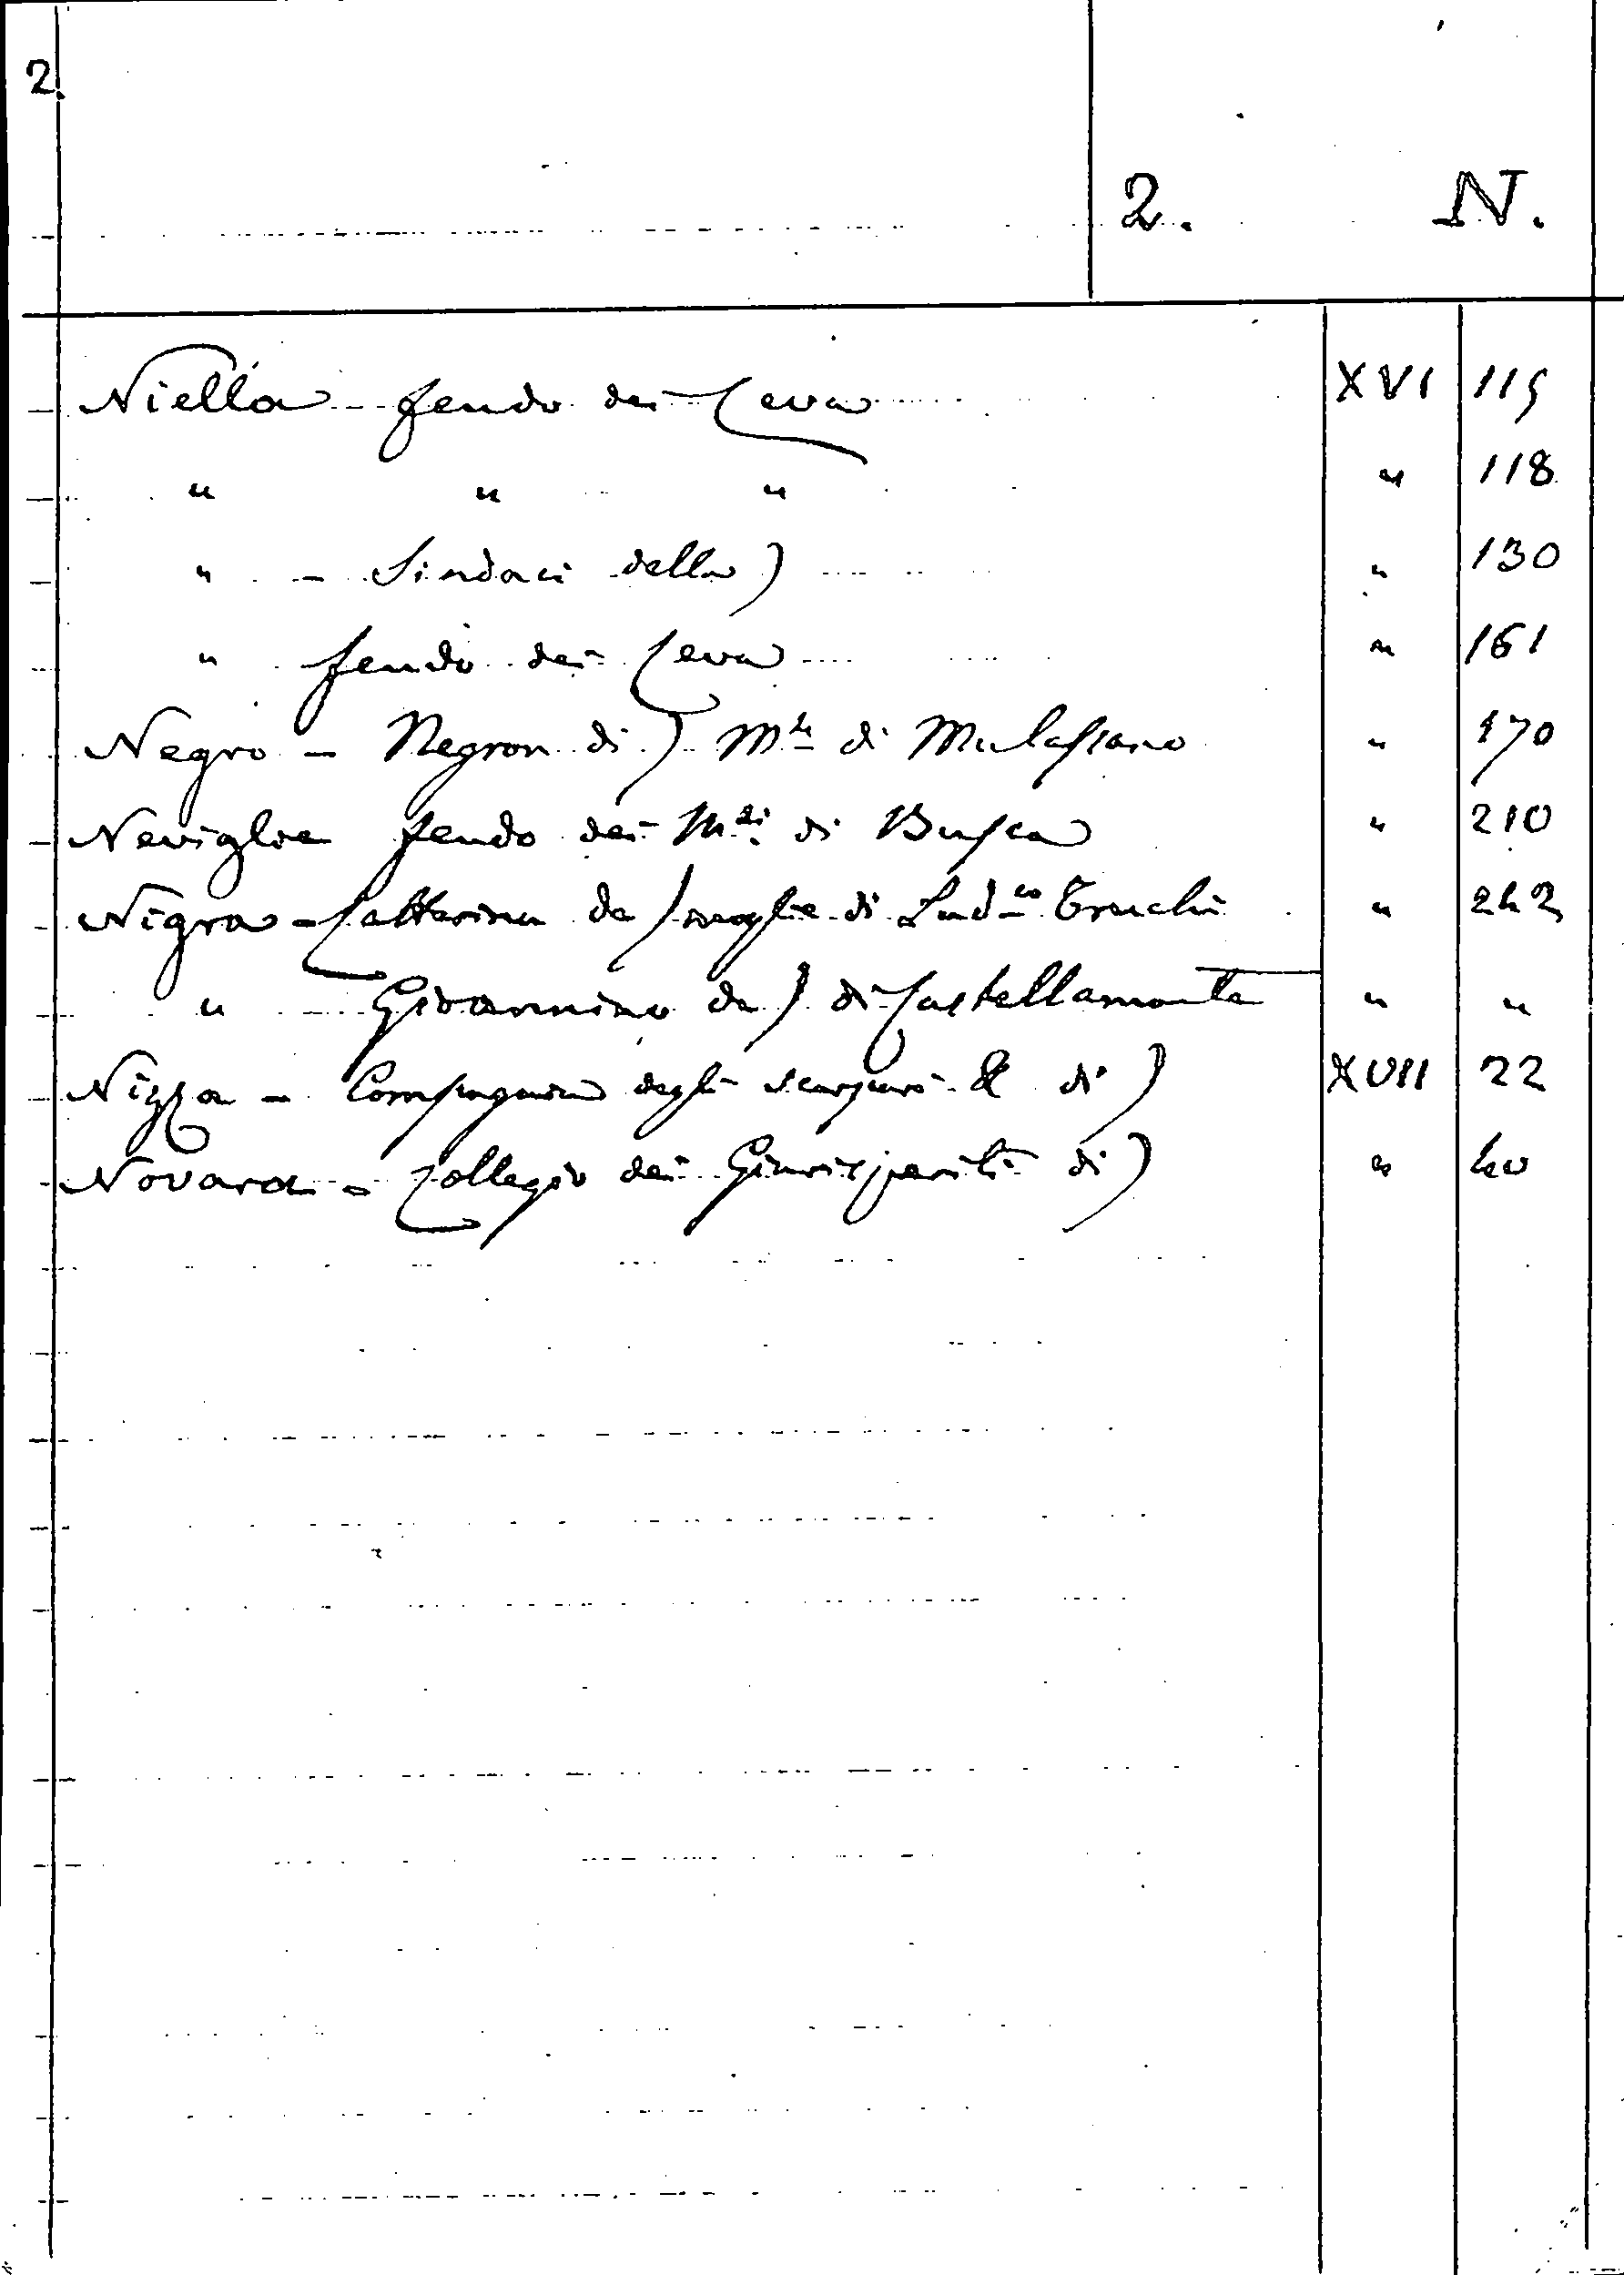 2.
2. N.
Niella - feudo dei Ceva XVI 115
" " " " 118
" - Sindaci della) " 130
" feudo dei Ceva " 161
Negro - Negron di) M.se di Mulassano " 170
Neviglie feudo dei M.si di Busca " 210
Nigra - Catterina de) moglie di Lud.co Truchi " 242
" Giovannino de) di Castellamonte " "
Nizza - Compagnia degli scarpari & di) XVII 22
Novara - Collegio dei Giurisperiti di) " 40